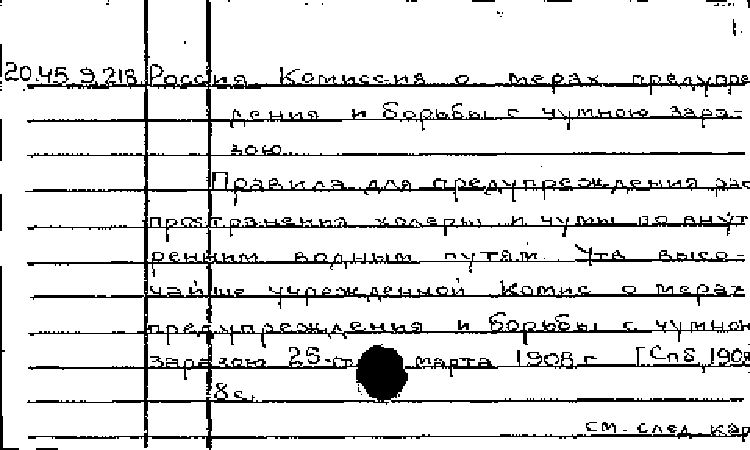 20.45.9.218 Россия Комиссия о мерах предупре
дения и борьбы с чумною зара-
зою.
Правила для предупреждения рас
пространения холеры и чумы по внут
ренним водным путям. Утв высо-
чайше учрежденной Комис о мерах
предупреждения и борьбы с чумною
заразою 25-го марта 1908 г [Спб, 1908
8 с.
см. след. кар